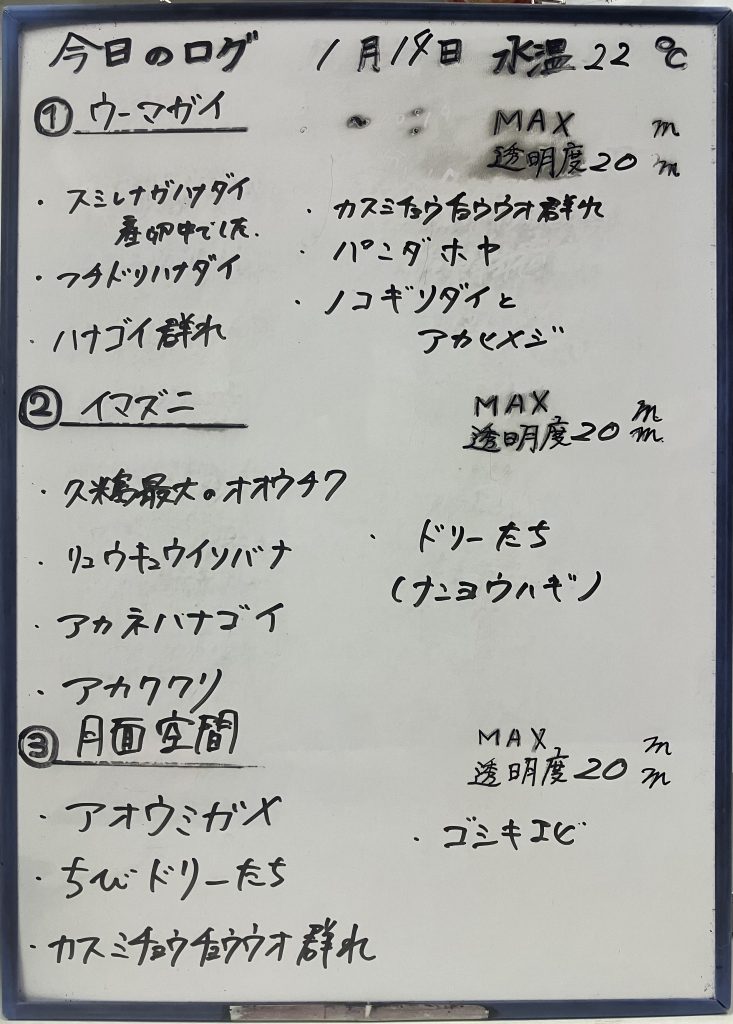 今日のログ 1月14日 水温22℃
① ウーマガイ
MAX m
透明度20m
・スミレナガハナダイ
産卵中でした.
・フチドリハナダイ
・ハナゴイ群れ
・カスミチョウチョウウオ群れ
・パンダホヤ
・ノコギリダイと
アカヒメジ
② イマズニ
MAX m
透明度20m
・久米島最大のオオウチワ
・リュウキュウイソバナ
・アカネハナゴイ
・アカククリ
・ドリーたち
(ナンヨウハギ)
③ 月面空間
MAX m
透明度20m
・アオウミガメ
・ちびドリーたち
・カスミチョウチョウウオ群れ
・ゴシキエビ